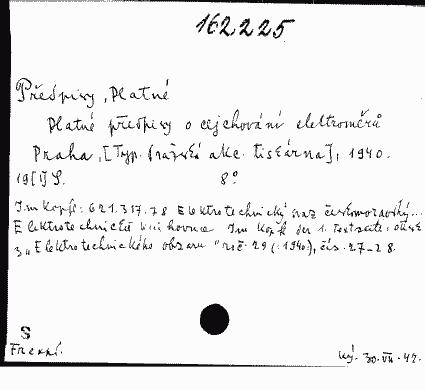 162225
Předpisy, Platné
Platné předpisy o cejchování elektroměrů
Praha, [Typ. Pražská akc. tiskárna], 1940.
19[1] S. 8°
Im Kopfe: 621.317.78 Elektrotechnický svaz českomoravský...
Elektrotechnická knihovna Im Kopfe der 1. Textseite:
z „Elektrotechnického obzoru" roč. 29 (:1940), čís. 27-28.
S
30.VII.42.